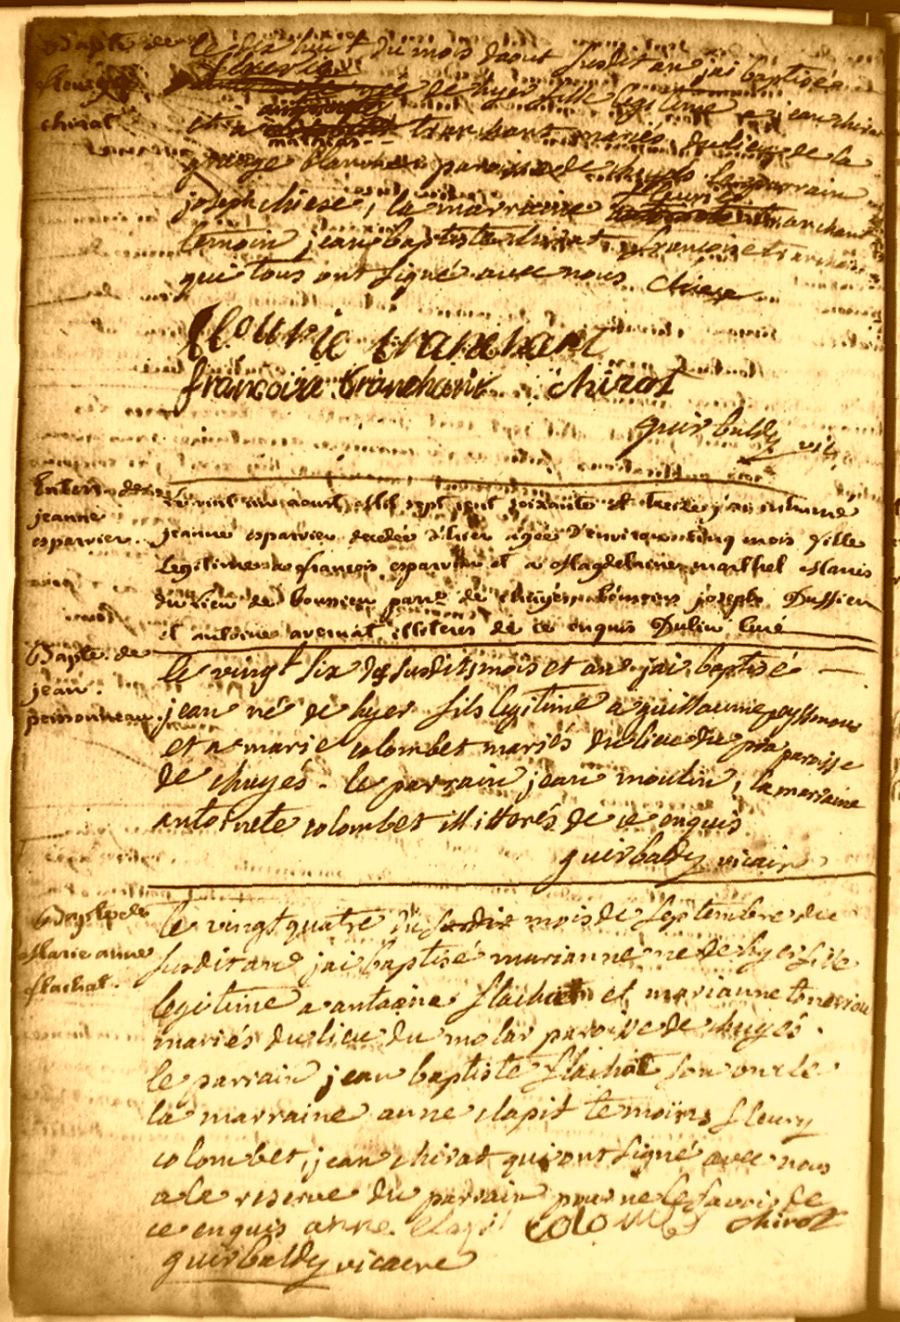 Bapte de
fleurie
chirat
le dix huit du mois daout susdit an jai baptisée
fleurie née de hyer fille legitime a jean chirat
et a tranchant mariés du lieu de la
grange blanche paroisse de chuyés le parrain
joseph chieze, la marraine fleurie tranchant
temoin jean baptiste françoise tranchant
qui tous ont signé avec nous chieze
fleurie tranchant
francoise tranchant chirat
guirbaldy vic
Enterr. de
jeanne
esparvier.
Le vint un aoust mil sept cent soixante et treize j'ai inhumé
jeanne esparvier decedée d'hier agée d'environ cinq mois fille
Legitime a françois esparvier et a Magdelaine mathel Mariés
du lieu de bousieu paroe de chuyés témoins joseph Dussieu
et antoine avernat illiterés de ce enquis Dulin Curé
Bapte. de
jean.
peironneau.
le vingt six du susdit mois et an jai baptisé
jean né de hyer fils legitime a guillaume
et a marie colombet mariés du lieu du pra paroisse
de chuyés. le parrain jean moulin, la marraine
antoinete colombet illiterés de ce enquis
guirbaldy vicaire
Bapt de
Marie anne
flachat.
le vingt quatre du susdit mois de septembre du
susdit an jai baptisé marianne né de hyer fille
legitime a antoine flachat et marianne
mariés du lieu du molar paroisse de chuyés.
le parrain jean baptiste flachat son oncle
la marraine anne clapit temoins fleury
colombet, jean chirat qui ont signé avec nous
a la reserve du parrain pour ne le savoir de
ce enquis anne clapit Colombet chirat
guirbaldy vicaire